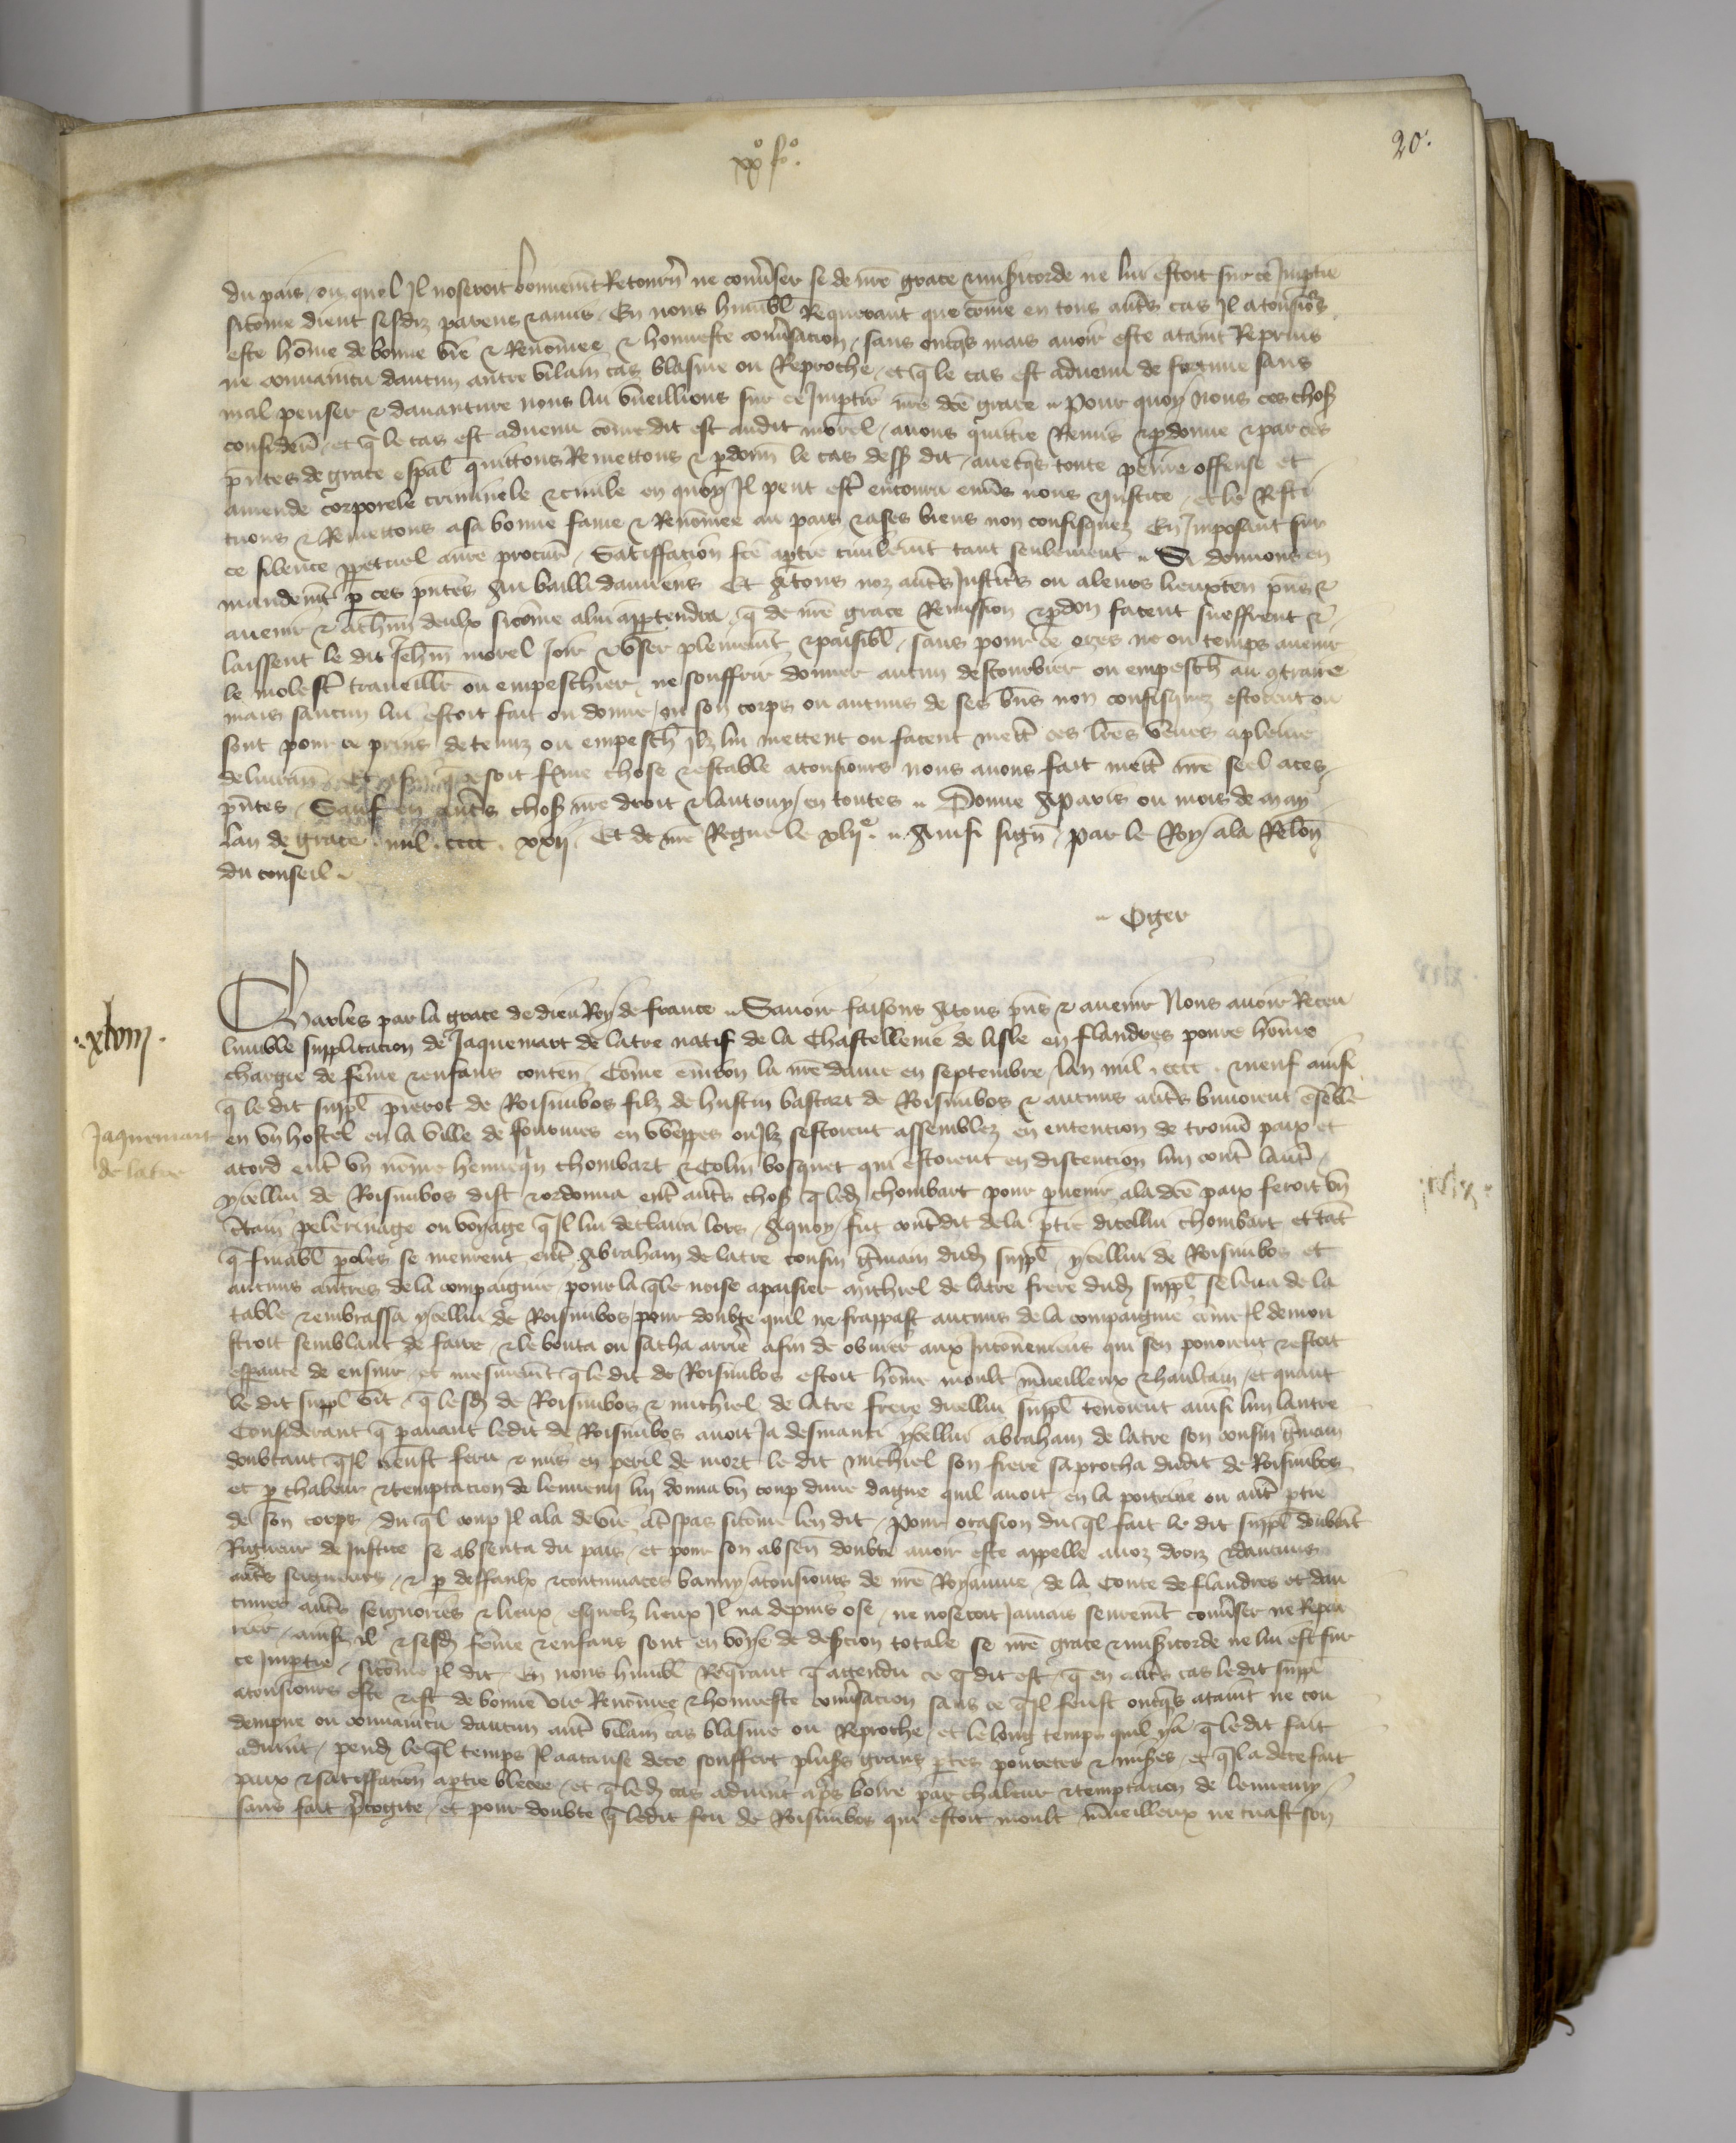 xx fo.
20.
du pais, ou quel Il noseroit bonnemt Retourn̄ ne conv̄ser se de nr̄e grace & mis̄icorde ne lui estoit sur ce Imptie
sicom̄e dient sesdiz parens & amis. En nous humbl̄ Requerant que com̄e en tous aut̄s cas Il a tousiors
este hom̄e de bonne vie & Renom̄ee & honneste conv̄sacion, sans onc̄qs mais avoir este ataint Reprins
ne convaincu daucun autre vilain cas blasme ou Reproche, et q̄ le cas est advenu de fortune sans
mal penser & davanture nous lui vueillions sur ce Imp̄tir nr̄e dc̄e grace. Pour quoy Nous ces choses
consider̄, et q̄ le cas est advenu com̄e dit est audit morel, avons quittie Remis & p̄donne & par ces
pn̄tes de grace esp̄al quittons Remettons & p̄donn̄ le cas dess̄ dit, avec̄qs toute peine offense et
amende corporele criminele & civile en quoy Il peut est̄ encouru env̄s nous & Justice, et le Resti
tuons & Remettons a sa bonne fame & Renom̄ee au pais & a ses biens non confisquez. En Imposant sur
ce silence pp̄etuel a nr̄e procur̄, Satiffacion fc̄e a p̄tie civilemt tant seulement. Si donnons en
mandemt p̄ ces pn̄tes Au bailli damiens Et A tous noz aut̄s Justic̄s ou a leurs lieuxten̄ pn̄s &
avenir & a ch̄un deulx sicom̄e a lui app̄tendra, q̄ de nr̄e grace Remission & p̄don facent sueffrent &
laissent le dit Jeh̄n morel Joir & user plenemt & paisibl̄, sans pour ce ores ne ou temps avenir
le molest̄ traveillr̄ ou empeschier, ne souffrir donner aucun destourbier ou empesch̄ au 9traire
mais saucun lui estoit fait ou donne, ou son corps ou aucuns de ses bn̄s non confisquez estoient ou
sont pour ce prins detenuz ou empesch̄ Ilz lui mettent ou facent mett̄ ces lr̄es veues a pleine
delivran̄. Et afin q̄ ce soit ferme chose & estable a tousiours nous avons fait mett̄ nr̄e seel a ces
pn̄tes, Sauf en aut̄s choses nr̄e droit & lautruy en toutes. Donne A Paris ou mois de may
lan de grace mil. cccc. xxij. Et de nr̄e Regne le xlije. Ainsi sign̄, Par le Roy a la Relōn
du conseil.
Oger
Charles par la grace de dieu Roy de france. Savoir faisons A tous pn̄s & avenir Nous avoir Receu
.xlviij.
lumble supplicacion de Jaquemart de latre natif de la Chastellenie de lisle en flandres povre hom̄e
chargie de fem̄e & enfans conten̄, Com̄e env̄iron la nr̄e dame en septembre lan mil. cccc. & neuf ainsi
q̄ le dit suppl̄ pierot de Roisimbos filz de hustin bastart de Roisimbos & aucuns aut̄s buvoient ens̄ēble
Jaquemart
de latre
en un hostel en la ville de fournes en weppes ou Ilz sestoient assemblez en entention de trouv̄ paix et
acord ent̄ un nom̄e hennequin chombart & Colin bosquet qui estoient en discention lun cont̄ laut̄,
ycellui de Roisimbos dist & ordonna ent̄ aut̄s choses q̄ led̄ chombart pour p̄venir a la dc̄e paix feroit un
c̄tain pelerinage ou voyage q̄ Il lui declaira lors, A quoy fut cont̄dit de la p̄tie dicellui chombart et tāt
q̄ finabl̄ p̄oles se meurent ent̄ Abraham de latre cousin ḡmain dud̄ suppl̄, ycellui de Roisimbos et
aucuns autres de la compaignie, pour la q̄le noise apaisier michiel de latre frere dud̄ suppl̄ se leva de la
table & embrassa ycellui de Roisimbos, pour doubte quil ne frappast aucuns de la compaignie com̄e Il demon
stroit semblant de faire, & le bouta ou sacha arrie afin de obvier aux Inconveniens qui sen povoient & estoit
espante de ensuir, et mesmemt q̄ le dit de Roisimbos estoit hom̄e moult m̄veilleux & haultain, et quant
le dit suppl̄ vit q̄ lesd̄ de Roisimbos & michiel de latre frere dicellui suppl̄ tenoient ainsi lun lautre
Considerant q̄ p̄avant ledit de Roisimbos avoit Ja desmanti ycellui abraham de latre son cousin ḡmain
doubtant q̄ Il neust feru & mis en peril de mort le dit michiel son frere saprocha dudit de Roisimbos
et p̄ chaleur & temptacion de lennemi lui donna un coup dune dague quil avoit, en la poitrine ou aut̄ p̄tie
de son corps, du q̄l coup Il ala de vie a t̄spas sicom̄e len dit. Pour ocasion du q̄l fait le dit suppl̄ doubtāt
Rigueur de Justice se absenta du pais, et pour son absen̄ doubte avoir este appelle a noz drois & daucuns
aut̄s seigneurs, & p̄ deffaulx & contumaces banny a tousiours de nr̄e Royaume, de la Conte de flandres et dau
cunes aut̄s seignories & lieux, esquelz lieux Il na depuis ose, ne noseroit Jamais seuremt conv̄ser ne Repai
rier, ainsi Il & sesd̄ fem̄e & enfans sont en voye de desercion totale se nr̄e grace & mis̄icorde ne lui est sur
ce Imp̄tie, sicom̄e Il dit. En nous humbl̄ Req̄rant q̄ attendu ce q̄ dit est, q̄ en aut̄s cas ledit suppl̄
a tousiours este & est de bonne vie Renom̄ee & honneste conv̄sacion sans ce q̄ Il feust onc̄qs ataint ne con
dempne ou convaincu daucun aut̄ vilain cas blasme ou Reproche, et le long temps quil y a q̄ le dit fait
advint, pend̄ le q̄l temps Il a a cause de ce souffert plus̄s grans p̄tes povretes & mis̄es, et q̄ Il a de ce fait
paix & satiffacion a p̄tie blecee, et q̄ led̄ cas advint ap̄s boire par chaleur & temptacion de lennemy,
sans fait p̄cogite, et pour doubte q̄ ledit feu de Roisimbos qui estoit moult m̄veilleux ne tuast son